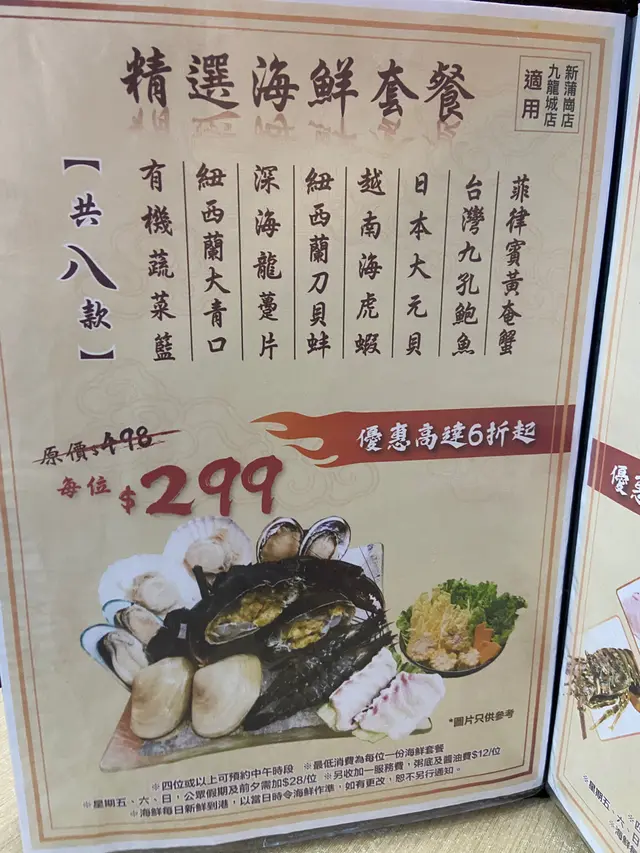 精選海鮮套餐
新蒲崗店
九龍城店
適用
菲律賓黃奄蟹
台灣九孔鮑魚
日本大元貝
越南海虎蝦
紐西蘭刀貝蚌
深海龍躉片
紐西蘭大青口
有機蔬菜籃
【共八款】
優惠高達6折起
原價$498
每位$299
*圖片只供參考
※四位或以上可預約中午時段 ※最低消費為每位一份海鮮套餐
※星期五、六、日，公眾假期及前夕需加$28/位 ※另收加一服務費，粥底及醬油費$12/位
※海鮮每日新鮮到港，以當日時令海鮮作準，如有更改，恕不另行通知。
優惠
※四
※星期五、六、日
※海鮮